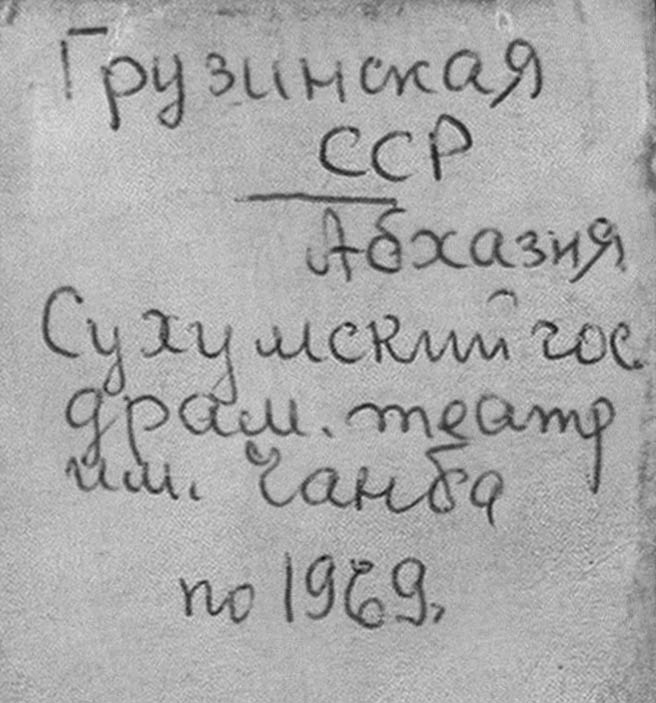 Грузинская
ССР
Абхазия
Сухумский гос
драм. театр
им. Чанба
по 1969,